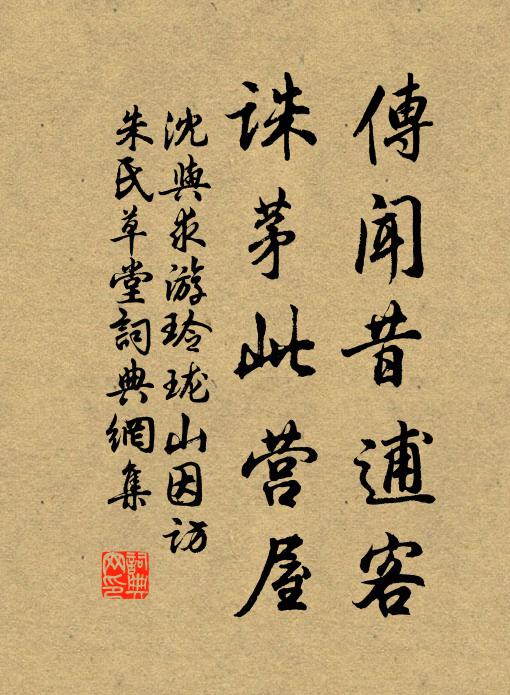 傳聞昔逋客
誅茅此营屋
沈與求游玲珑山因访
朱氏草堂詞典網集
詞典网印